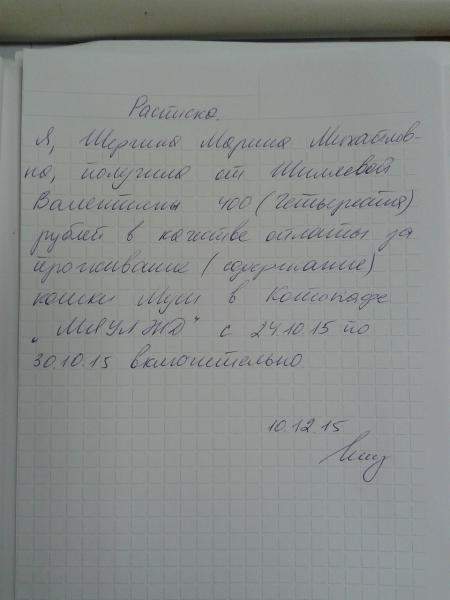 Расписка.
Я, Шергина Марина Михайлов-
на, получила от Шиляевой
Валентины 400 (Четыреста)
рублей в качестве оплаты за
проживание (содержание)
кошки Муси в Котокафе
"МЯУЛЖД" с 24.10.15 по
30.10.15 включительно
10.12.15